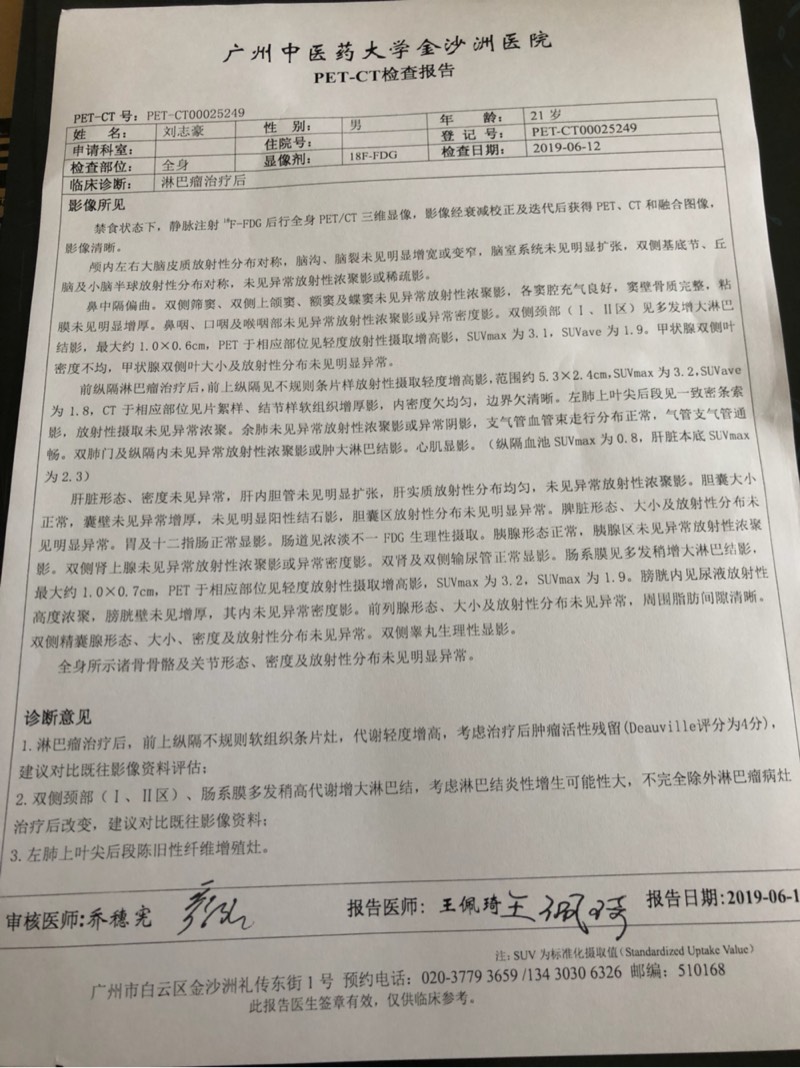 广州中医药大学金沙洲医院
PET-CT检查报告
PET-CT 号：PET-CT00025249
姓 名： 刘志豪 性 别： 男 年 龄： 21 岁
申请科室： 住院号： 登 记 号： PET-CT00025249
检查部位： 全身 显像剂： 18F-FDG 检查日期： 2019-06-12
临床诊断： 淋巴瘤治疗后
影像所见
禁食状态下，静脉注射 ¹⁸F-FDG 后行全身 PET/CT 三维显像，影像经衰减校正及迭代后获得 PET、CT 和融合图像，
影像清晰。
颅内左右大脑皮质放射性分布对称，脑沟、脑裂未见明显增宽或变窄，脑室系统未见明显扩张，双侧基底节、丘
脑及小脑半球放射性分布对称，未见异常放射性浓聚影或稀疏影。
鼻中隔偏曲。双侧筛窦、双侧上颌窦、额窦及蝶窦未见异常放射性浓聚影，各窦腔充气良好，窦壁骨质完整，粘
膜未见明显增厚。鼻咽、口咽及喉咽部未见异常放射性浓聚影或异常密度影。双侧颈部（Ⅰ、Ⅱ区）见多发增大淋巴
结影，最大约 1.0×0.6cm，PET 于相应部位见轻度放射性摄取增高影，SUVmax 为 3.1，SUVave 为 1.9。甲状腺双侧叶
密度不均，甲状腺双侧叶大小及放射性分布未见明显异常。
前纵隔淋巴瘤治疗后，前上纵隔见不规则条片样放射性摄取轻度增高影，范围约 5.3×2.4cm，SUVmax 为 3.2，SUVave
为 1.8，CT 于相应部位见片絮样、结节样软组织增厚影，内密度欠均匀，边界欠清晰。左肺上叶尖后段见一致密条索
影，放射性摄取未见异常浓聚。余肺未见异常放射性浓聚影或异常阴影，支气管血管束走行分布正常，气管支气管通
畅。双肺门及纵隔内未见异常放射性浓聚影或肿大淋巴结影。心肌显影。（纵隔血池 SUVmax 为 0.8，肝脏本底 SUVmax
为 2.3）
肝脏形态、密度未见异常，肝内胆管未见明显扩张，肝实质放射性分布均匀，未见异常放射性浓聚影。胆囊大小
正常，囊壁未见异常增厚，未见明显阳性结石影，胆囊区放射性分布未见异常浓聚影。脾脏形态、大小及放射性分布未
见明显异常。胃及十二指肠正常显影。肠道见浓淡不一 FDG 生理性摄取。胰腺形态正常，胰腺区未见异常放射性浓聚
影。双侧肾上腺未见异常放射性浓聚影或异常密度影。双肾及双侧输尿管正常显影。肠系膜见多发稍增大淋巴结影，
最大约 1.0×0.7cm，PET 于相应部位见轻度放射性摄取增高影，SUVmax 为 3.2，SUVmax 为 1.9。膀胱内见尿液放射性
高度浓聚，膀胱壁未见增厚，其内未见异常密度影。前列腺形态、大小及放射性分布未见异常，周围脂肪间隙清晰。
双侧精囊腺形态、大小、密度及放射性分布未见异常。双侧睾丸生理性显影。
全身所示诸骨骨骼及关节形态、密度及放射性分布未见明显异常。
诊断意见
1. 淋巴瘤治疗后，前上纵隔不规则软组织条片灶，代谢轻度增高，考虑治疗后肿瘤活性残留(Deauville评分为4分)，
建议对比既往影像资料评估；
2. 双侧颈部（Ⅰ、Ⅱ区）、肠系膜多发稍高代谢增大淋巴结，考虑淋巴结炎性增生可能性大，不完全除外淋巴瘤病灶
治疗后改变，建议对比既往影像资料；
3. 左肺上叶尖后段陈旧性纤维增殖灶。
审核医师：乔穗宪 报告医师：王佩琦 王佩琦 报告日期：2019-06-1
注：SUV 为标准化摄取值（Standardized Uptake Value）
广州市白云区金沙洲礼传东街 1 号 预约电话：020-3779 3659 /134 3030 6326 邮编：510168
此报告医生签章有效，仅供临床参考。